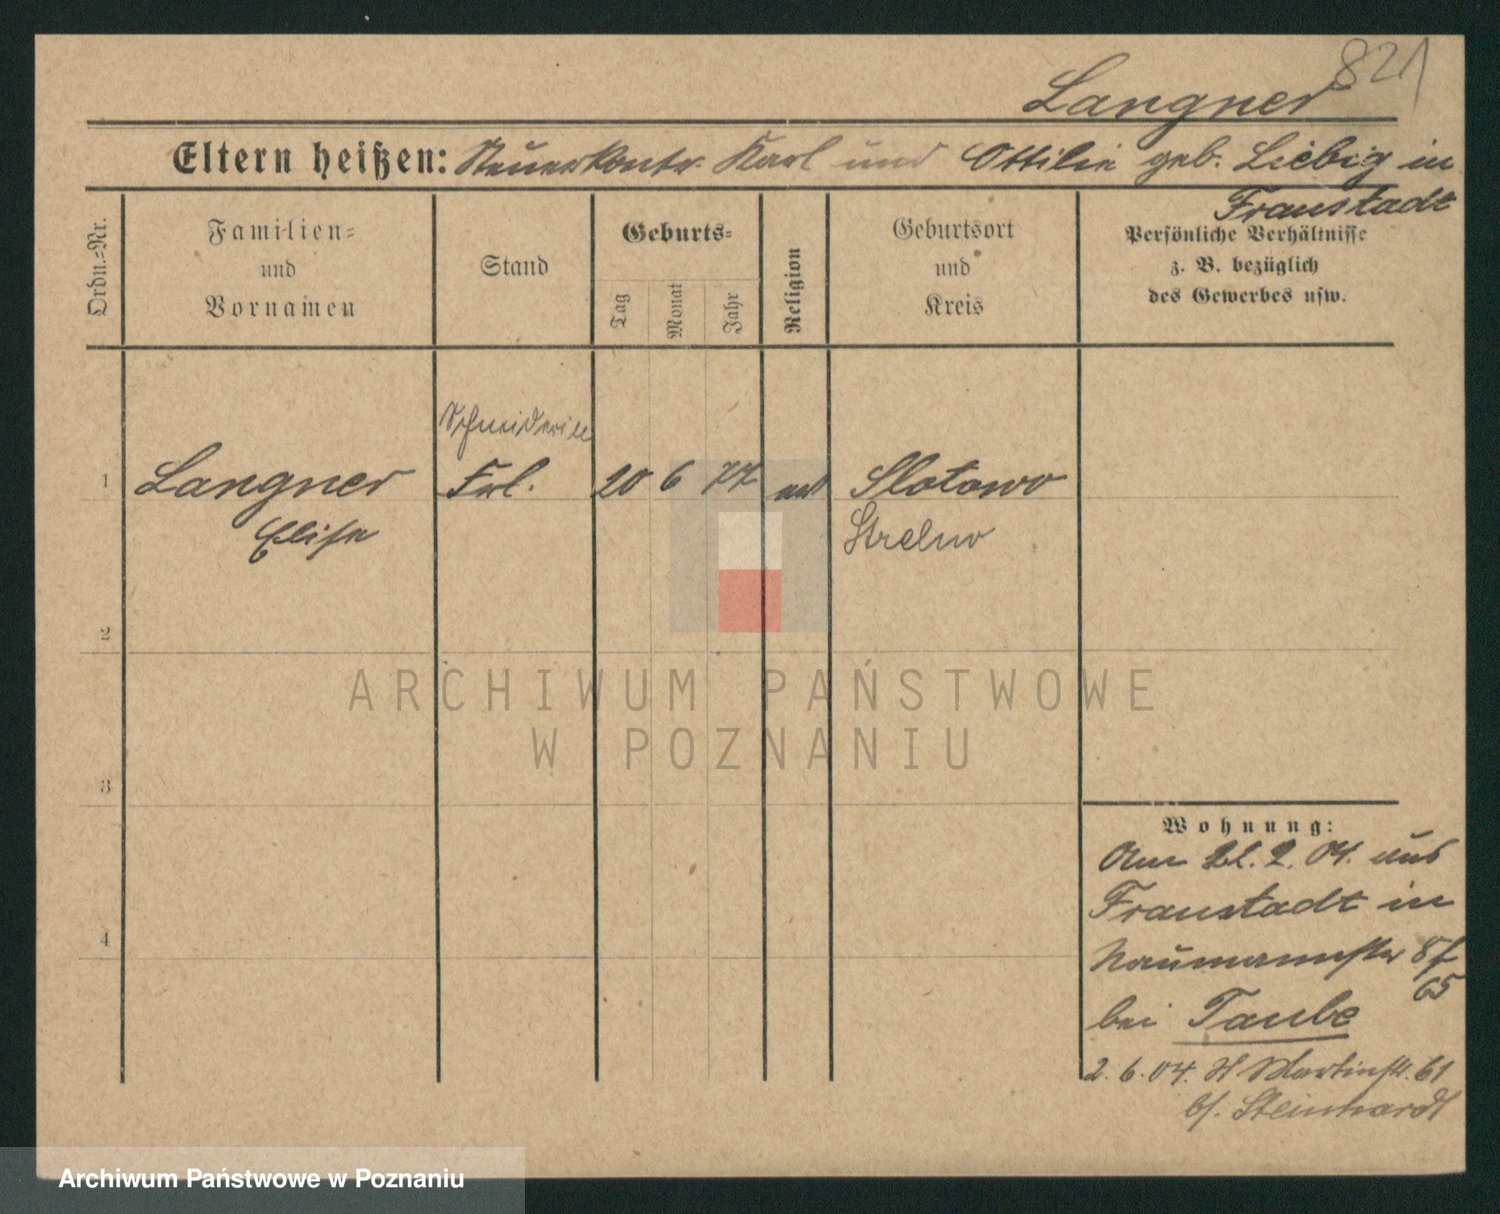 821
Langner
Eltern heißen: Steuerkontr. Karl und Ottilie geb. Liebig in
Fraustadt
Ordn.-Nr.
Familien-
und
Vornamen
Stand
Geburts-
Tag
Monat
Jahr
Religion
Geburtsort
und
Kreis
Persönliche Verhältnisse
z. B. bezüglich
des Gewerbes usw.
Schneiderin
1 Langner Frl. 20 6 77 Slotowo
Elise Strelno
2
ARCHIWUM PAŃSTWOWE
W POZNANIU
3
Wohnung:
Am 21.2.04. aus
Fraustadt in
4
Naumannstr 8
65
bei Taube
2.6.04. St Martinstr. 61
b/. Steinhardt
Archiwum Państwowe w Poznaniu